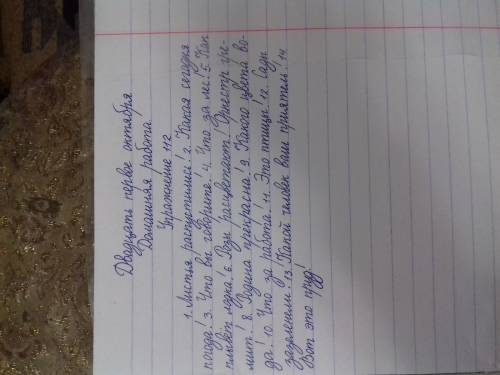 Двадцать первое октября
Домашняя работа.
Упражнение 112
1. Листья распустились! 2. Какая сегодня
погода! 3. Что вы говорите! 4. Что за лес! 5. Как
плывёт лодка! 6. Розы расцветают! Оркестр гре-
мит! 8. Родина прекрасна! 9. Какого цвета во-
да! 10. Что за работа! 11. Это птицы! 12. Сады
зазеленели! 13. Какой человек ваш приятель! 14
Вот это пруд!